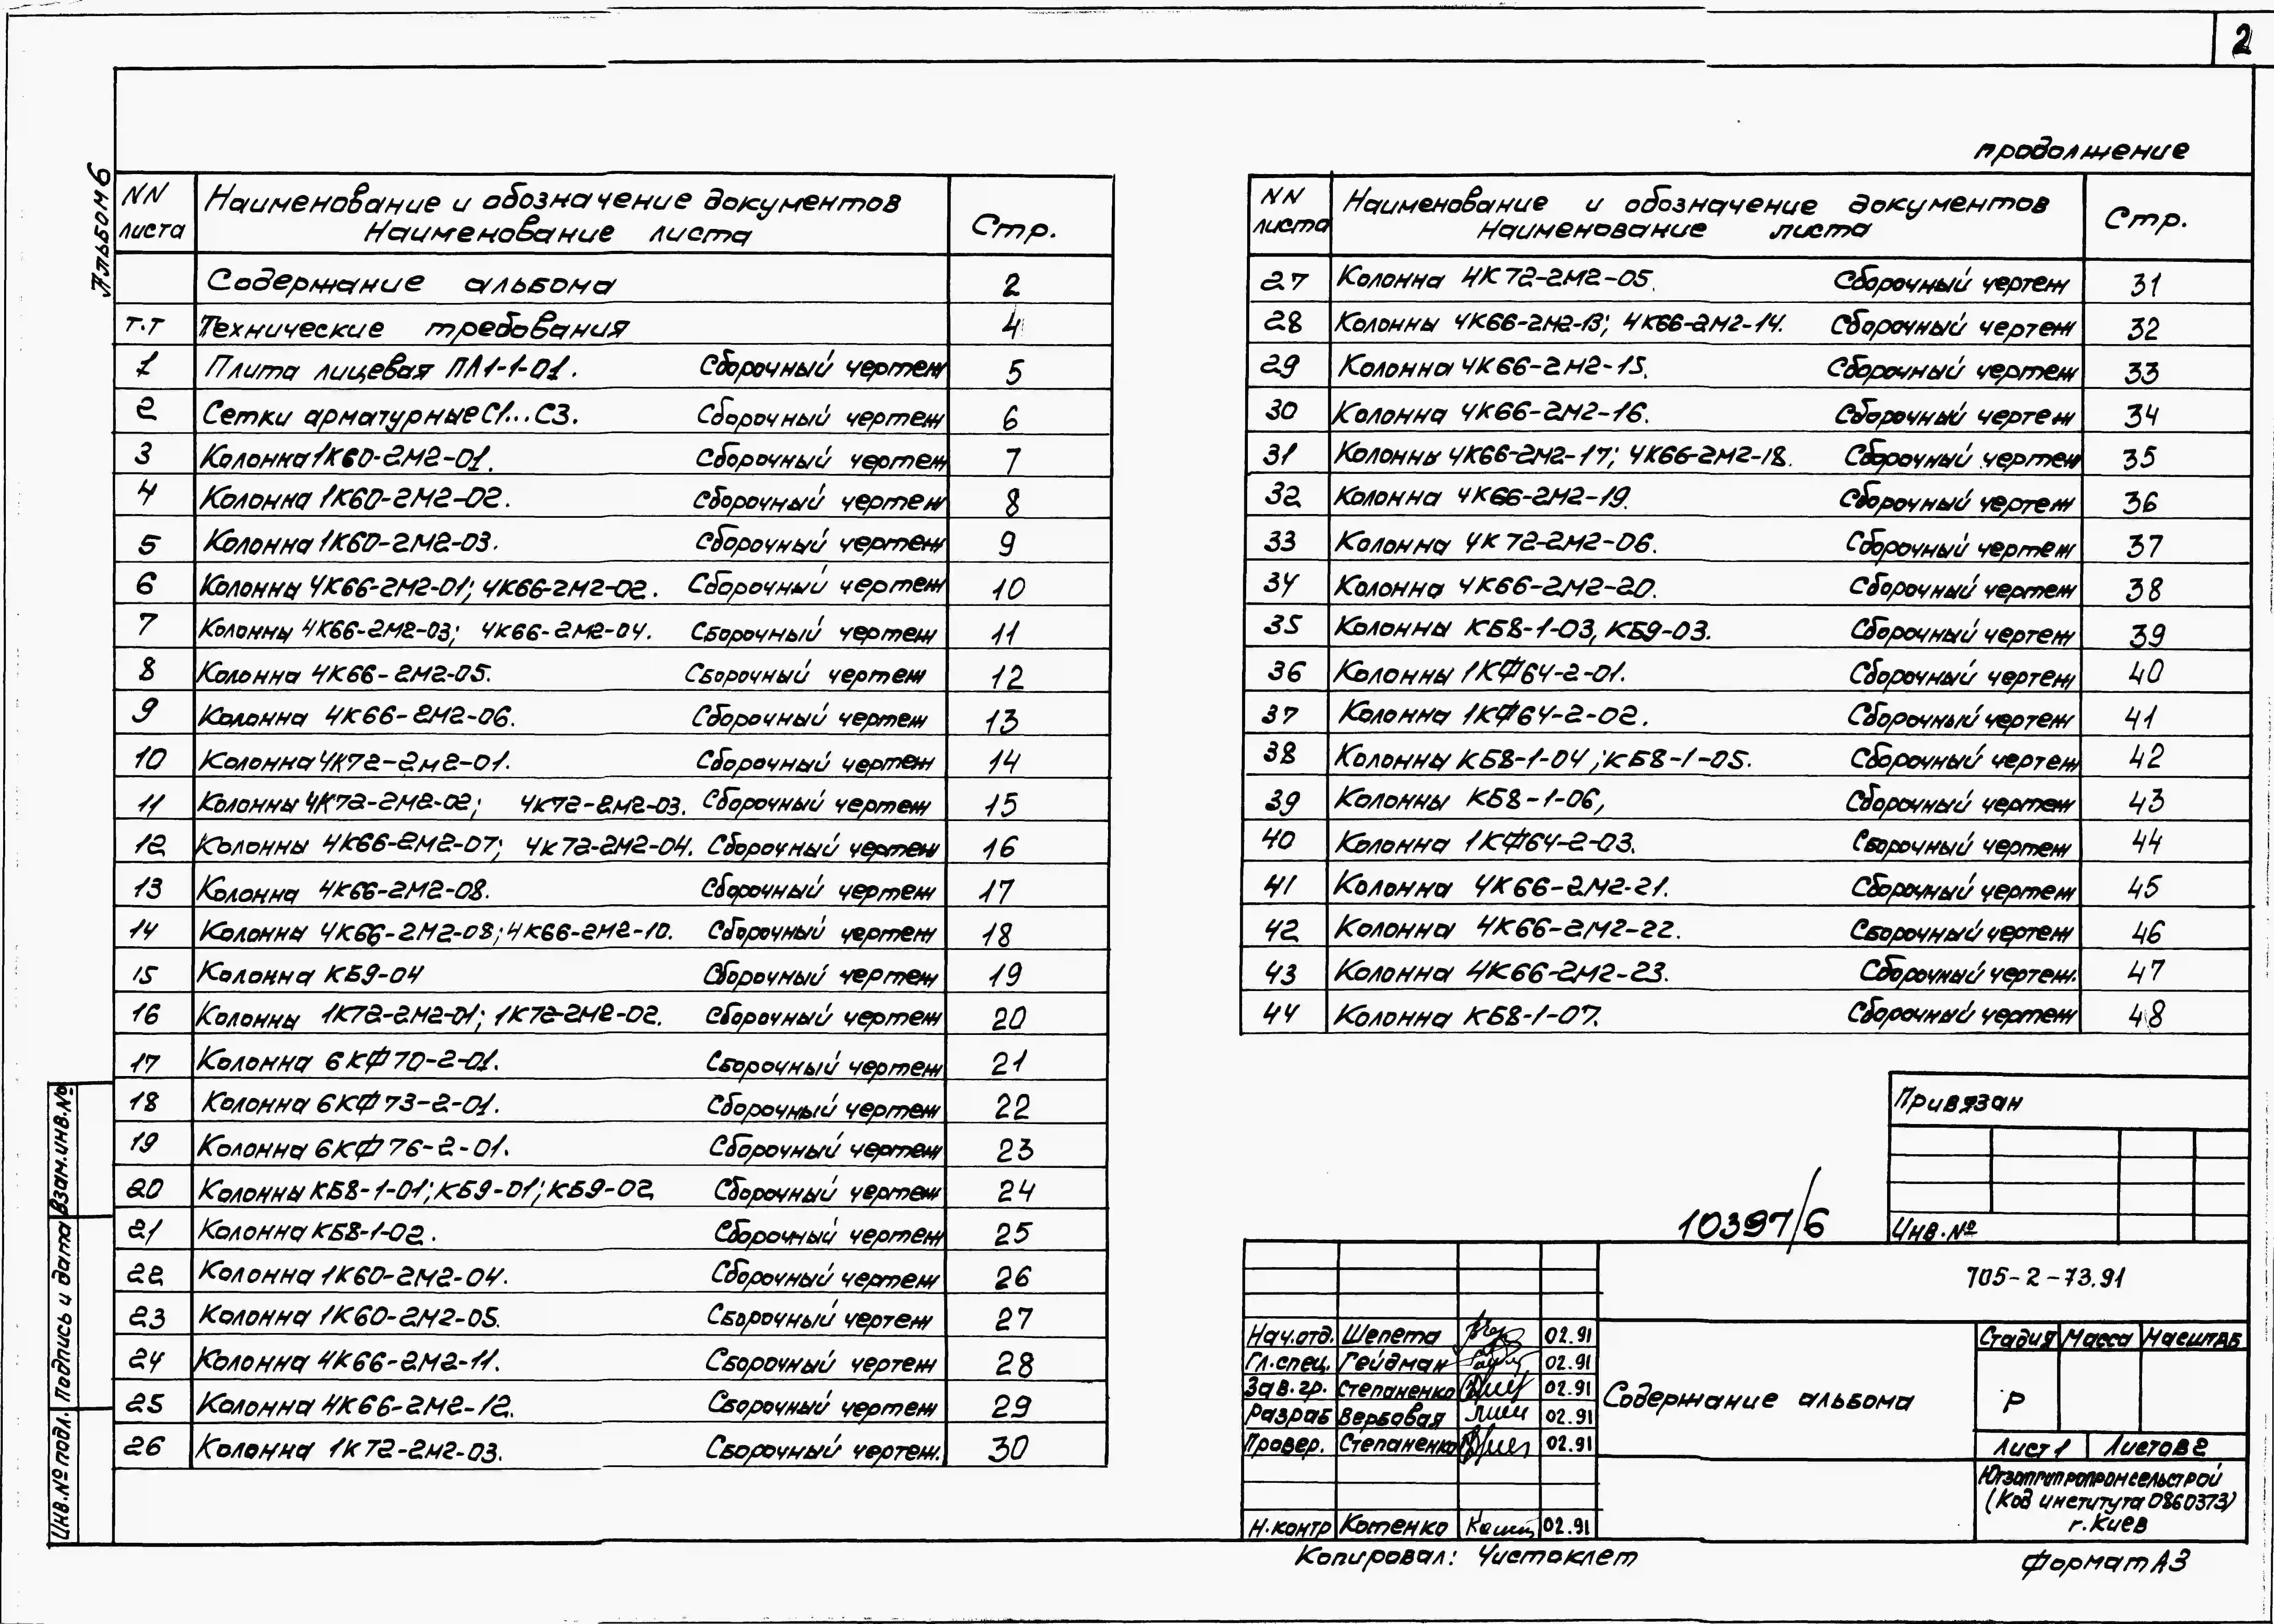 2
Альбом 6
NN листа
Наименование и обозначение документов
Наименование листа
Стр.
Содержание альбома 2
т.т Технические требования 4
1 Плита лицевая ПЛ1-1-01. Сборочный чертеж 5
2 Сетки арматурные С1...С3. Сборочный чертеж 6
3 Колонна 1К60-2М2-01. Сборочный чертеж 7
4 Колонна 1К60-2М2-02. Сборочный чертеж 8
5 Колонна 1К60-2М2-03. Сборочный чертеж 9
6 Колонны 4К66-2М2-01; 4К66-2М2-02. Сборочный чертеж 10
7 Колонны 4К66-2М2-03; 4К66-2М2-04. Сборочный чертеж 11
8 Колонна 4К66-2М2-05. Сборочный чертеж 12
9 Колонна 4К66-2М2-06. Сборочный чертеж 13
10 Колонна 4К72-2М2-01. Сборочный чертеж 14
11 Колонны 4К72-2М2-02; 4К72-2М2-03. Сборочный чертеж 15
12 Колонны 4К66-2М2-07; 4К72-2М2-04. Сборочный чертеж 16
13 Колонна 4К66-2М2-08. Сборочный чертеж 17
14 Колонны 4К66-2М2-08; 4К66-2М2-10. Сборочный чертеж 18
15 Колонна КБ9-04 Сборочный чертеж 19
16 Колонны 1К72-2М2-01; 1К72-2М2-02. Сборочный чертеж 20
17 Колонна 6КФ70-2-01. Сборочный чертеж 21
18 Колонна 6КФ73-2-01. Сборочный чертеж 22
19 Колонна 6КФ76-2-01. Сборочный чертеж 23
20 Колонны КБ8-1-01; КБ9-01; КБ9-02 Сборочный чертеж 24
21 Колонна КБ8-1-02. Сборочный чертеж 25
22 Колонна 1К60-2М2-04. Сборочный чертеж 26
23 Колонна 1К60-2М2-05. Сборочный чертеж 27
24 Колонна 4К66-2М2-11. Сборочный чертеж 28
25 Колонна 4К66-2М2-12. Сборочный чертеж 29
26 Колонна 1К72-2М2-03. Сборочный чертеж. 30
продолжение
NN листа
Наименование и обозначение документов
Наименование листа
Стр.
27 Колонна 4К72-2М2-05. Сборочный чертеж 31
28 Колонны 4К66-2М2-13; 4К66-2М2-14. Сборочный чертеж 32
29 Колонна 4К66-2М2-15. Сборочный чертеж 33
30 Колонна 4К66-2М2-16. Сборочный чертеж 34
31 Колонны 4К66-2М2-17; 4К66-2М2-18. Сборочный чертеж 35
32 Колонна 4К66-2М2-19. Сборочный чертеж 36
33 Колонна 4К72-2М2-06. Сборочный чертеж 37
34 Колонна 4К66-2М2-20. Сборочный чертеж 38
35 Колонны КБ8-1-03, КБ9-03. Сборочный чертеж 39
36 Колонны 1КФ64-2-01. Сборочный чертеж 40
37 Колонна 1КФ64-2-02. Сборочный чертеж 41
38 Колонны КБ8-1-04; КБ8-1-05. Сборочный чертеж 42
39 Колонны КБ8-1-06, Сборочный чертеж 43
40 Колонна 1КФ64-2-03. Сборочный чертеж 44
41 Колонна 4К66-2М2-21. Сборочный чертеж 45
42 Колонна 4К66-2М2-22. Сборочный чертеж 46
43 Колонна 4К66-2М2-23. Сборочный чертеж. 47
44 Колонна КБ8-1-07. Сборочный чертеж 48
Привязан
Инв.№
10397/6
705-2-73.91
Нач.отд. Шепета 02.91
Гл.спец. Гейдман 02.91
Зав.гр. Степаненко 02.91
Разраб Вербовая 02.91
Провер. Степаненко 02.91
Н.контр Котенко 02.91
Содержание альбома
Стадия Масса Масштаб
Р
Лист 1 Листов 2
Югзапгипропромсельстрой
(Код института 0860373)
г.Киев
Копировал: Чистоклет
Формат А3
Взам.инв.№
Подпись и дата
Инв.№ подл.